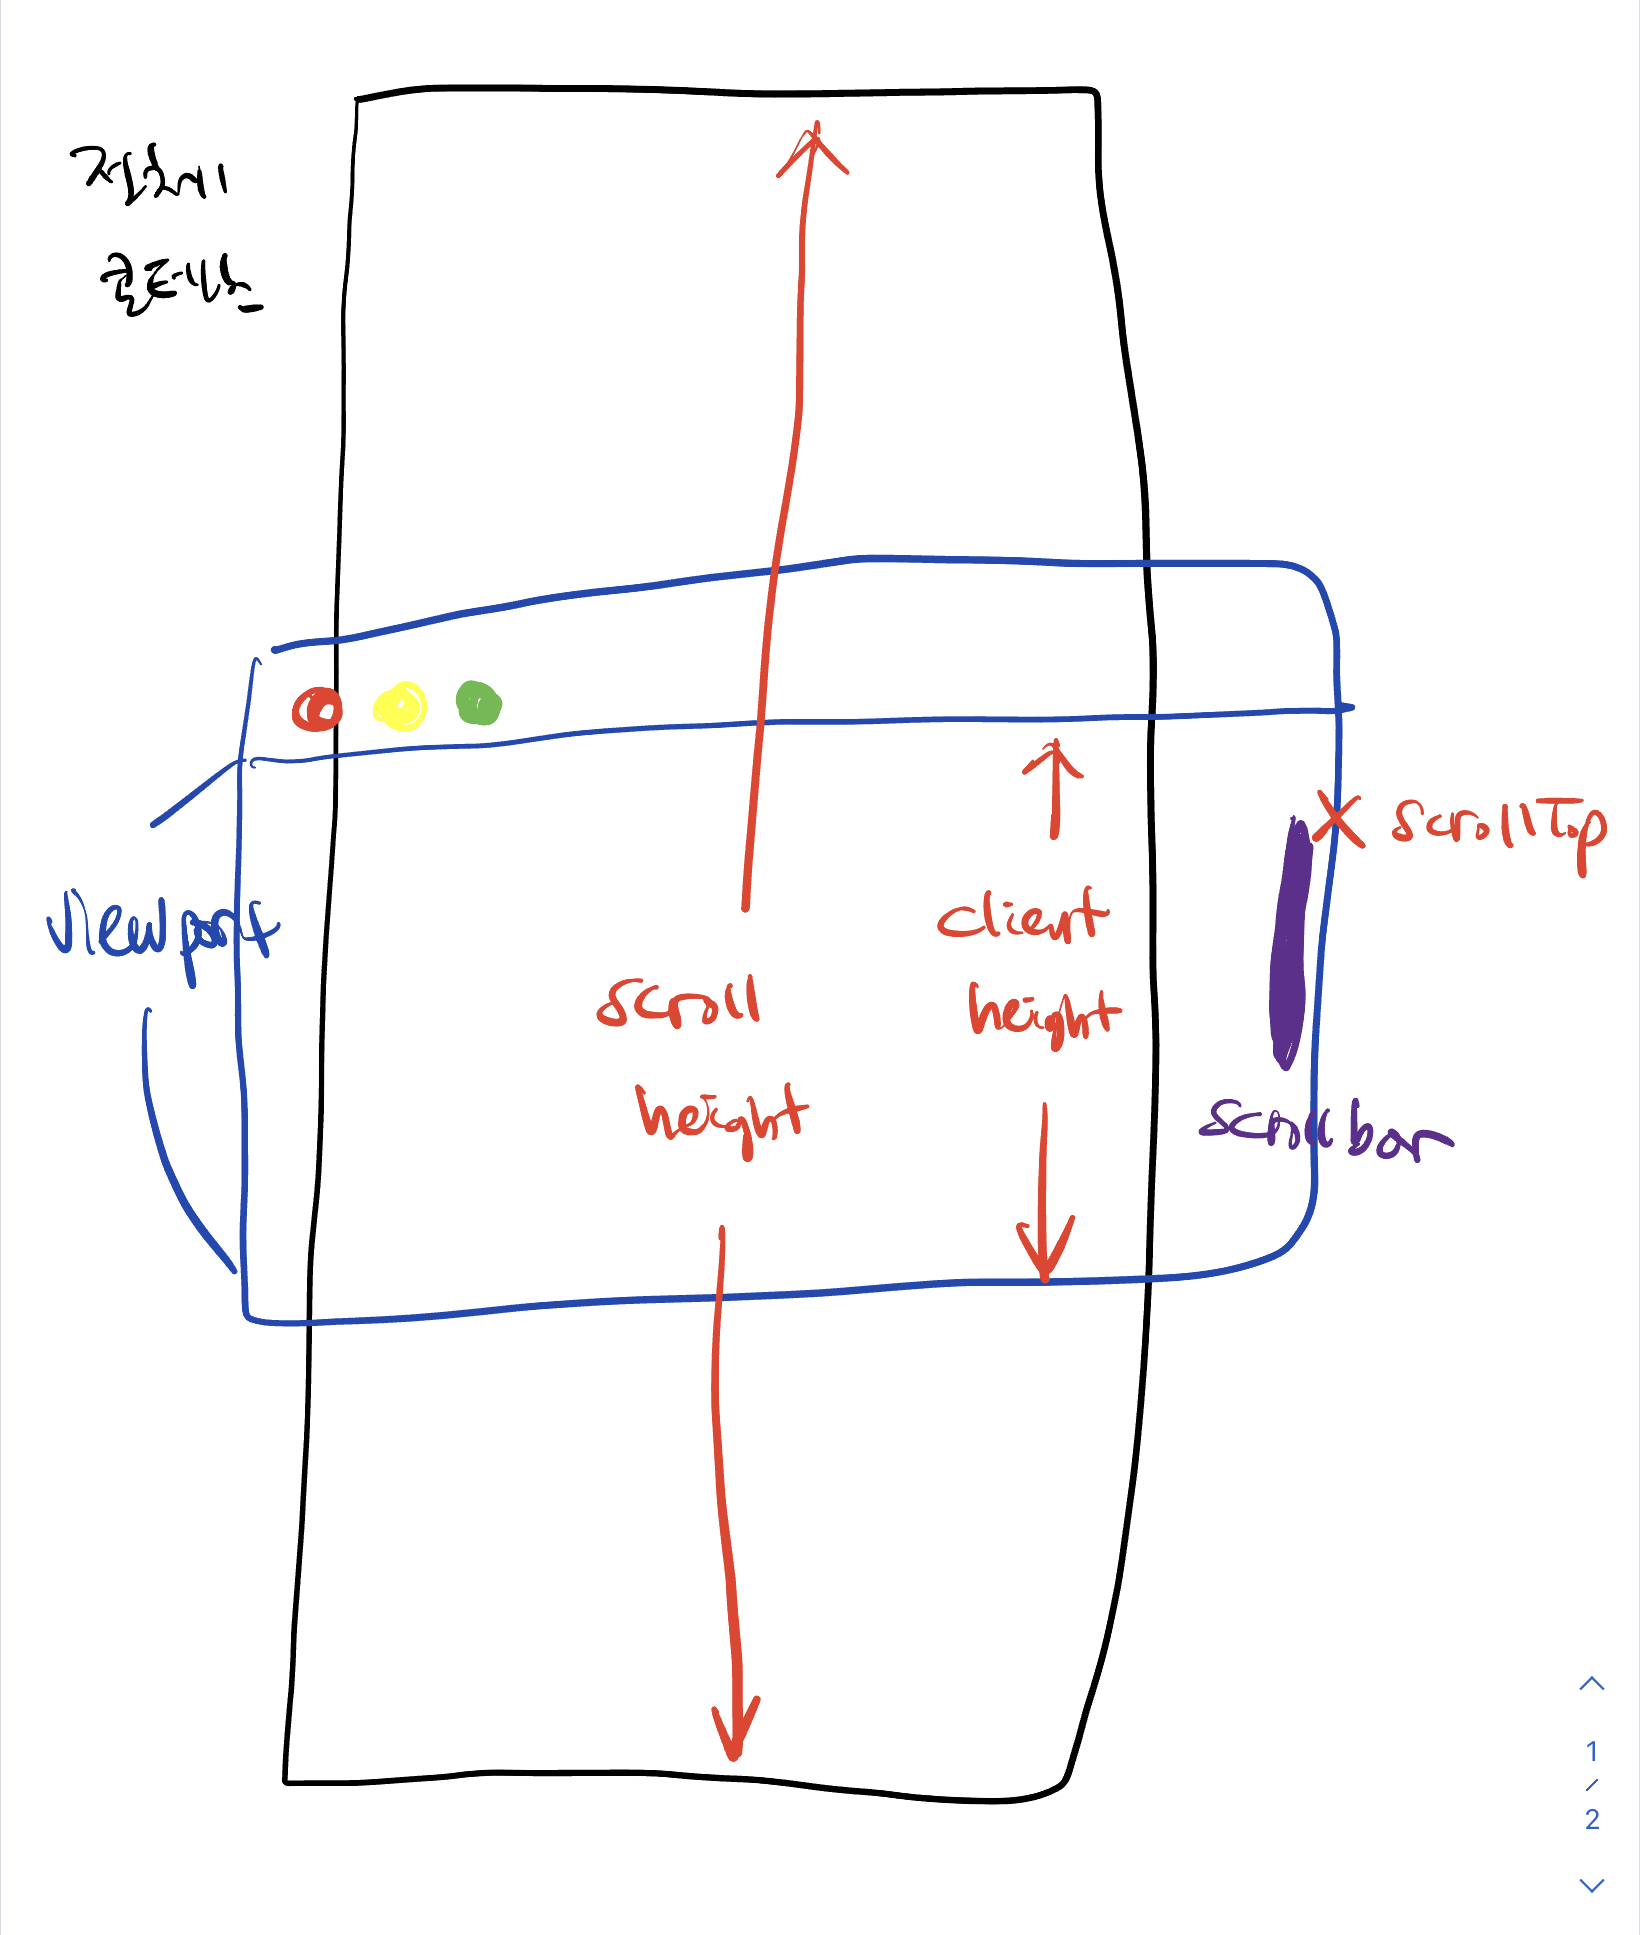 전체
콘텐츠
scrollTop
viewport
client
height
scroll
height
scrollbar
1
/
2